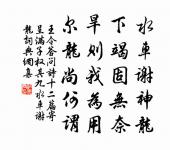 水車謝神龍
下竭固無奈
旱則我為用
尔龍尚何謂
王令答問詩十二篇寄
呈滿子權其九水車謝
龍詞典網集